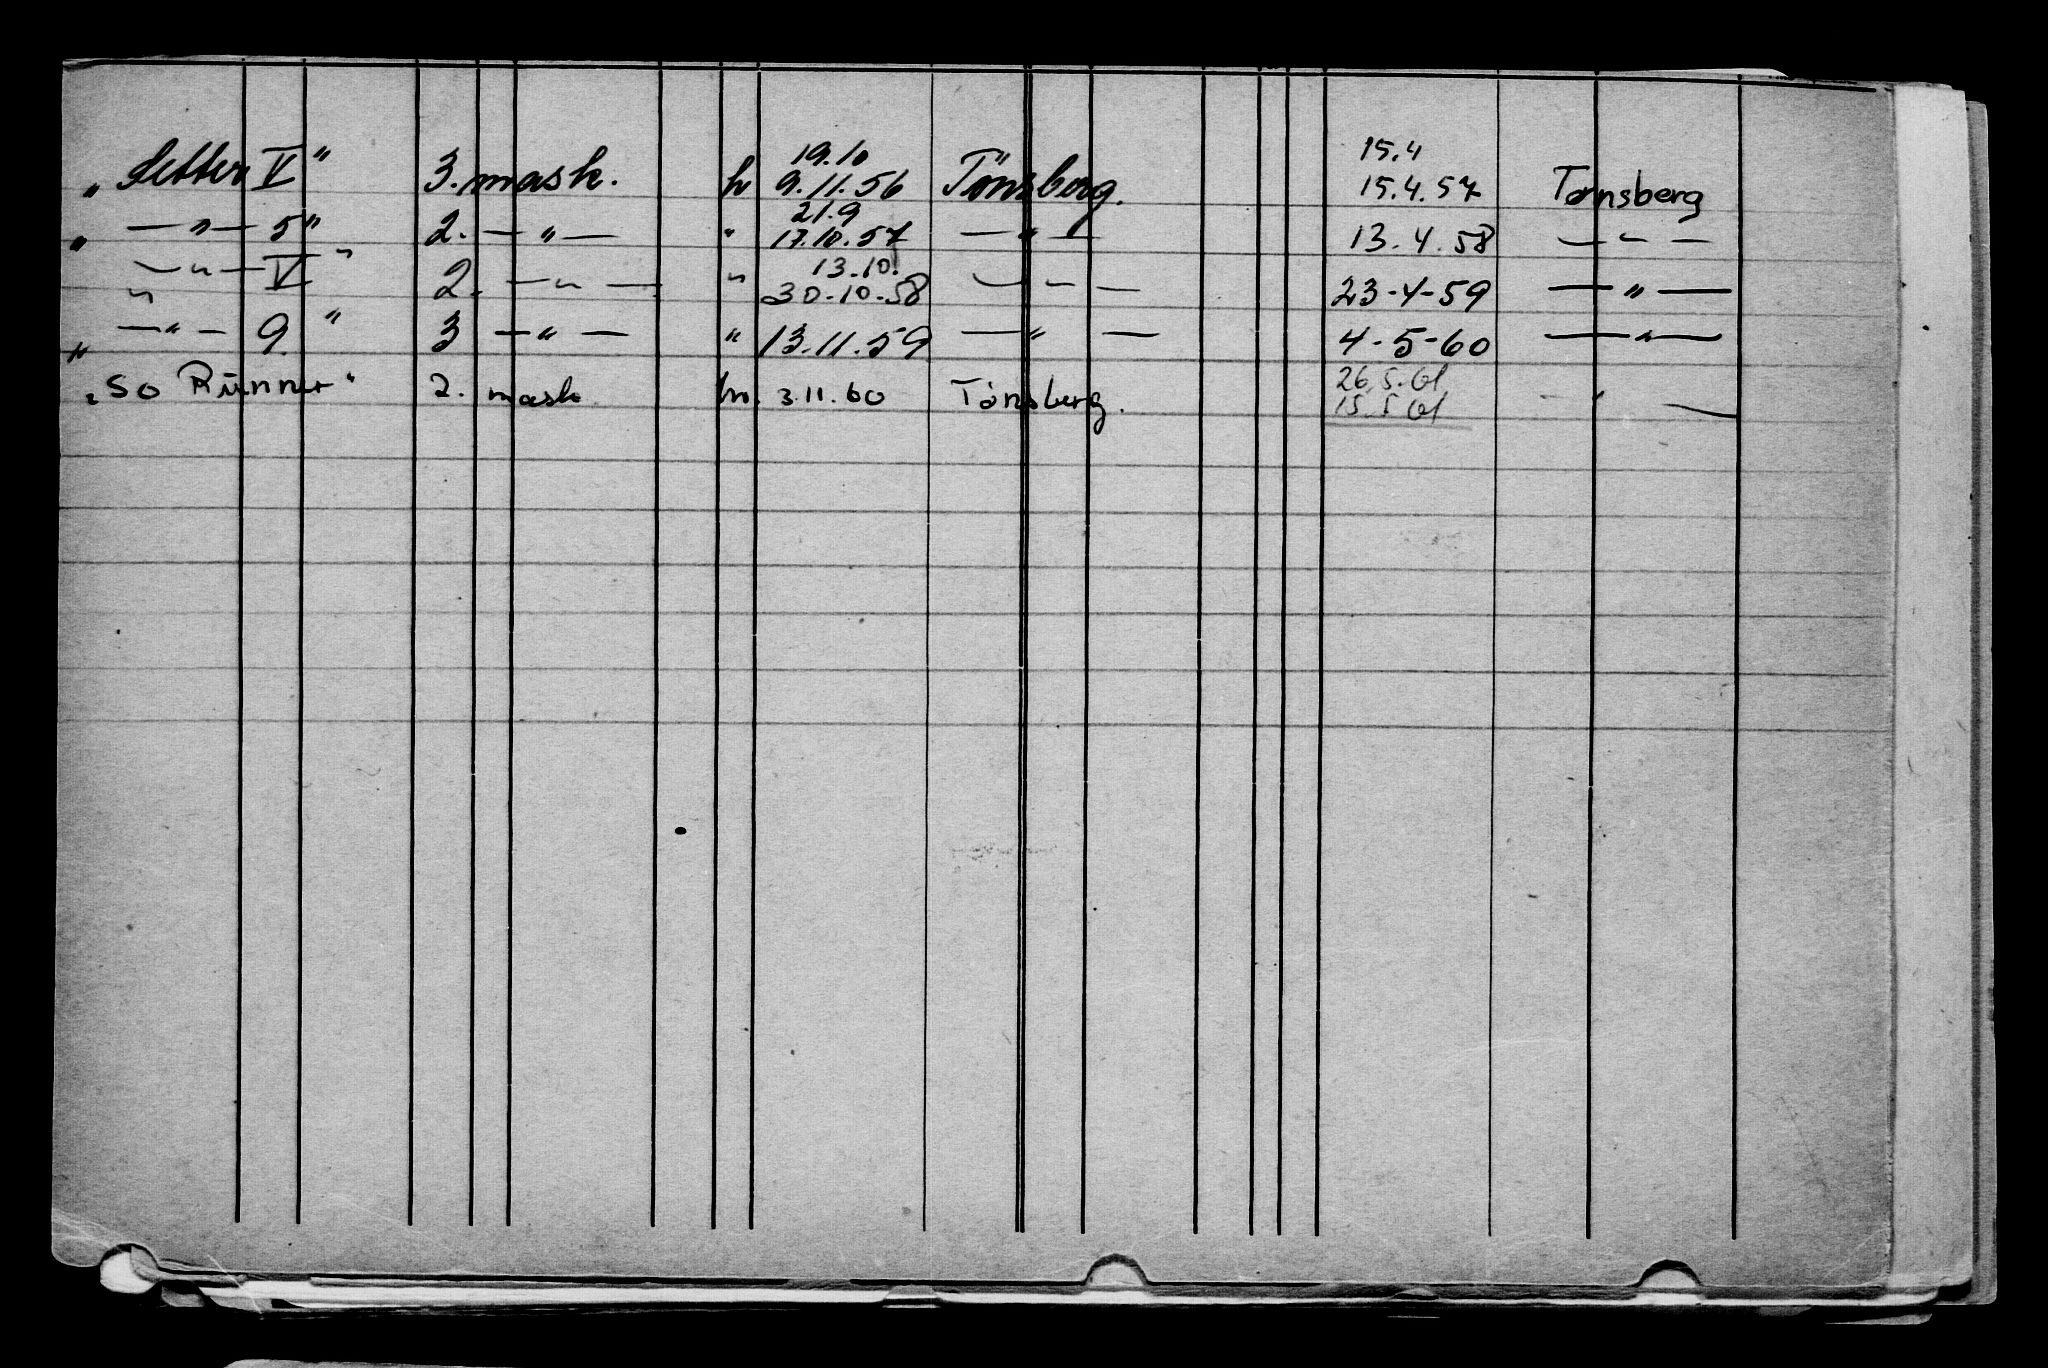 19.10 15.4
„Setter V" 3. mask. h 9.11.56 Tönsberg. 15.4.57 Tønsberg
21.9
„ —"— 5" 2. —"— " 17.10.57 —"— 13.4.58 —"—
13.10.
„ —"— V " 2. —"— " 30-10-58 —"— 23-4-59 —"—
„ —"— 9. " 3 —"— " 13.11.59 —"— 4-5-60 —"—
26.5.61
„So Runner" 2. mask hv. 3.11.60 Tönsberg. 15.5.61 — " —